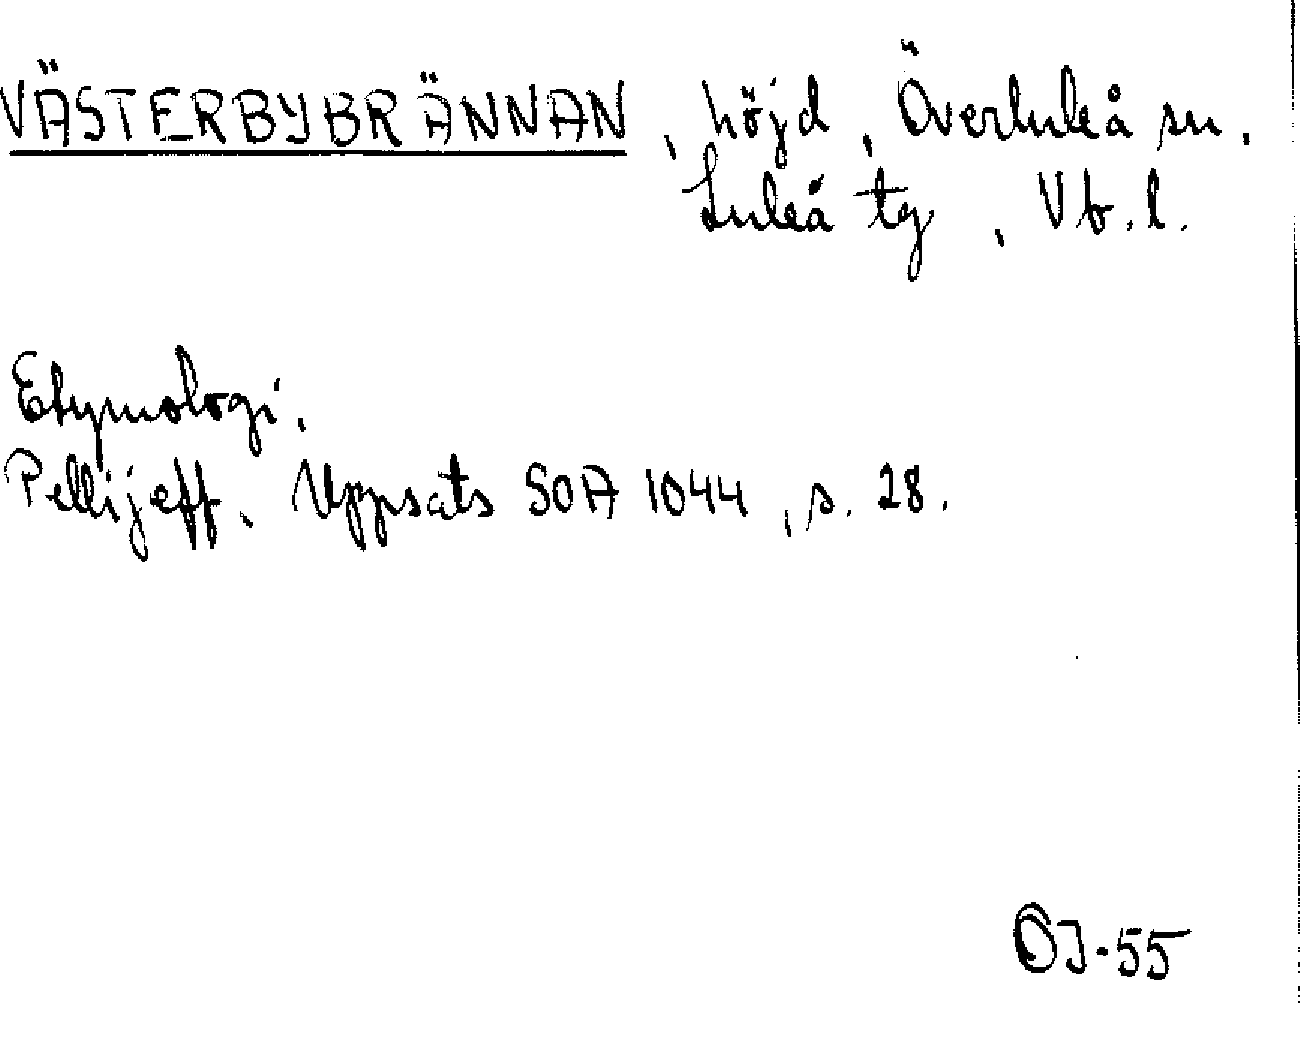 VÄSTERBYBRÄNNAN, höjd, Överluleå sn.
Luleå tg, Vb. l.
Etymologi.
Pellijeff. Uppsats SOA 1044, s. 28.
OJ-55